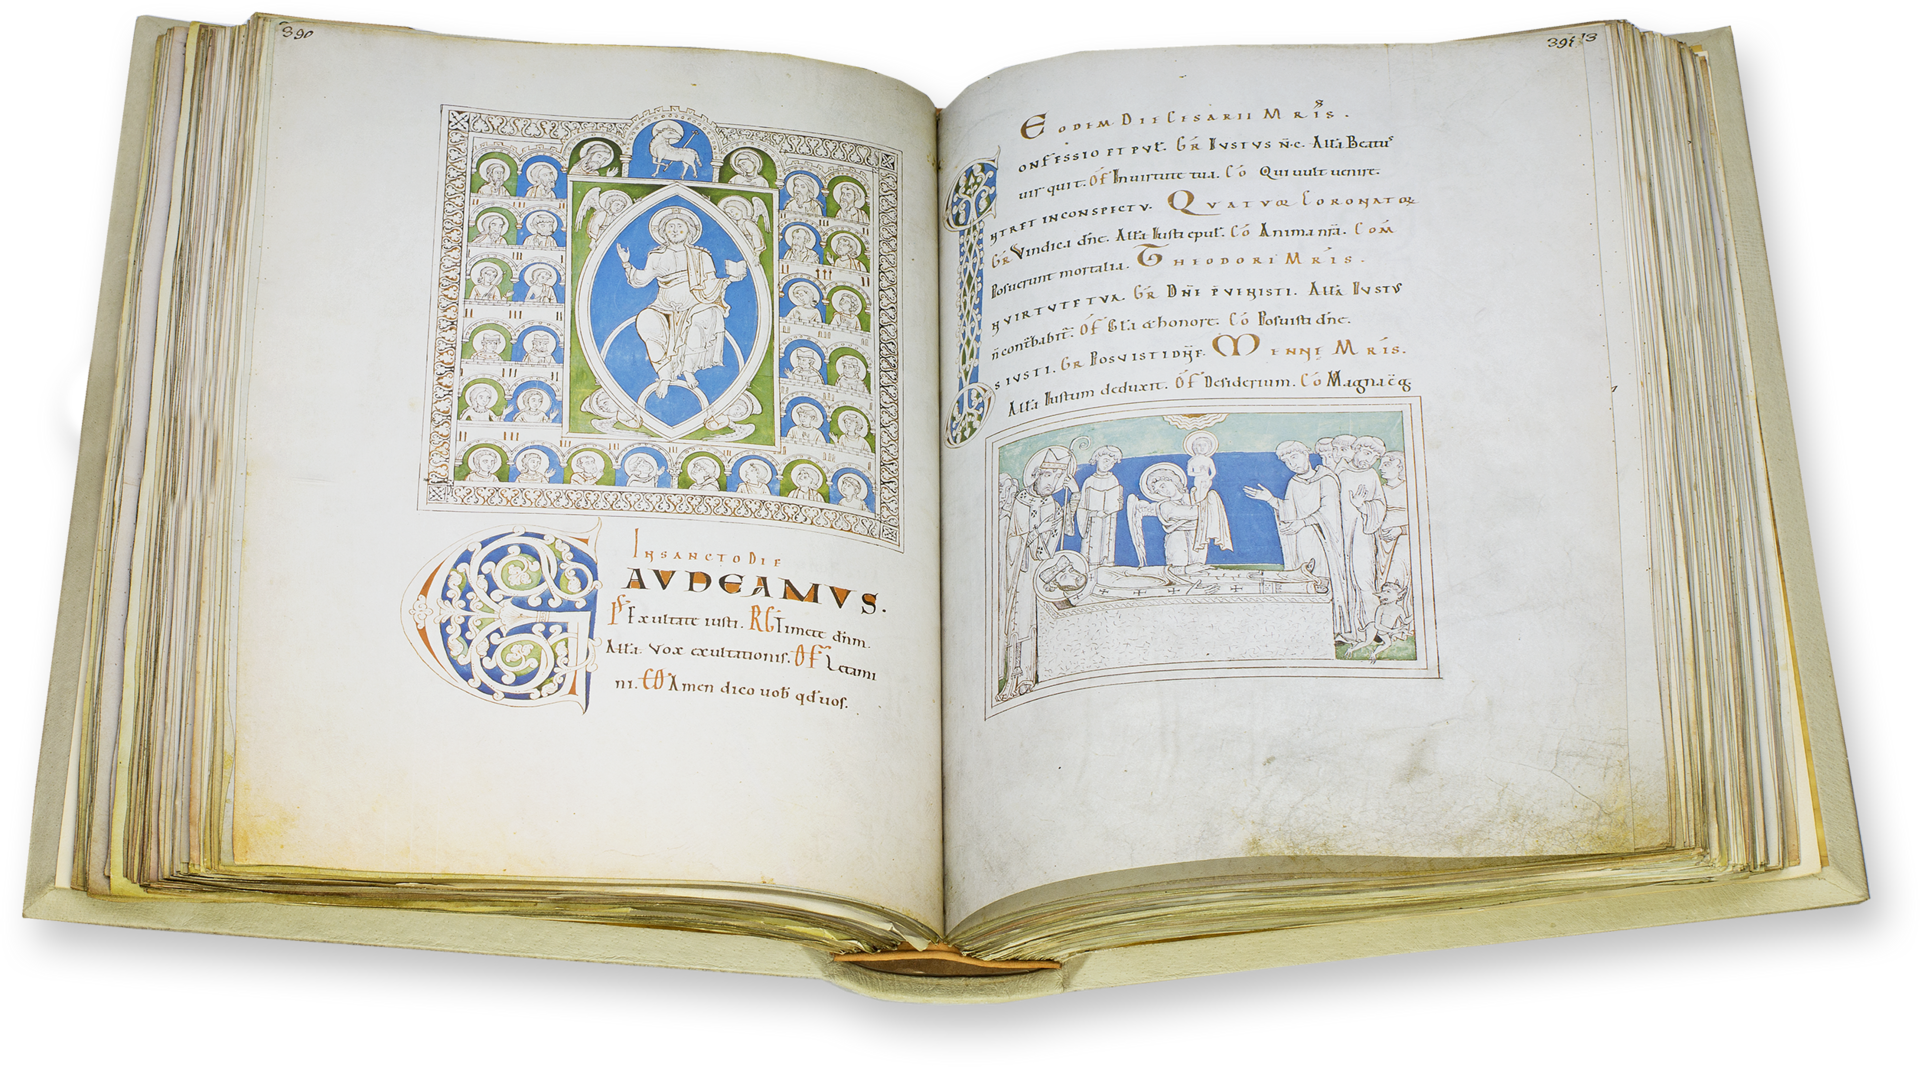 390
IN SANCTO DIE
GAVDEAMVS.
Ps Exultate iusti. RG Timete dnm.
All'a. Vox exultationis. OF Lętami
ni. CO Amen dico uob qd uos.
391 13
EODEM DIE CESARII MRIS.
CONFESSIO ET PUL. GR IUSTUS N C. All'a Beatus
uir qui t. OF In uirtute tua. CO Qui uult uenire.
INTRET IN CONSPECTV. QVATVOR CORONATOR
GR Vindica dne. All'a Iusti epul. CO Anima nra. COM
Posuerunt mortalia. THEODORI MRIS.
IN VIRTVTE TVA. GR DNE PVENISTI. All'a IVSTVS
n conturbabit. OF Gl'a & honore. CO Posuisti dne.
OS IVSTI. GR POSVISTI DNE. MENNE MRIS.
All'a Iustum deduxit. OF Desiderium. CO Magna ē g